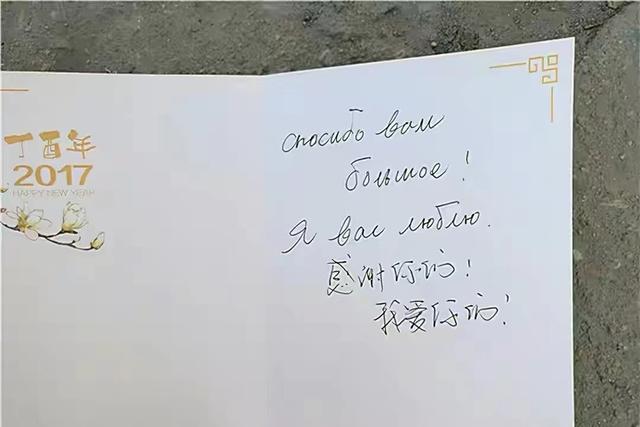 丁酉年
2017
HAPPY NEW YEAR
спасибо вам
большое!
Я вас люблю.
感谢你们!
我爱你们!